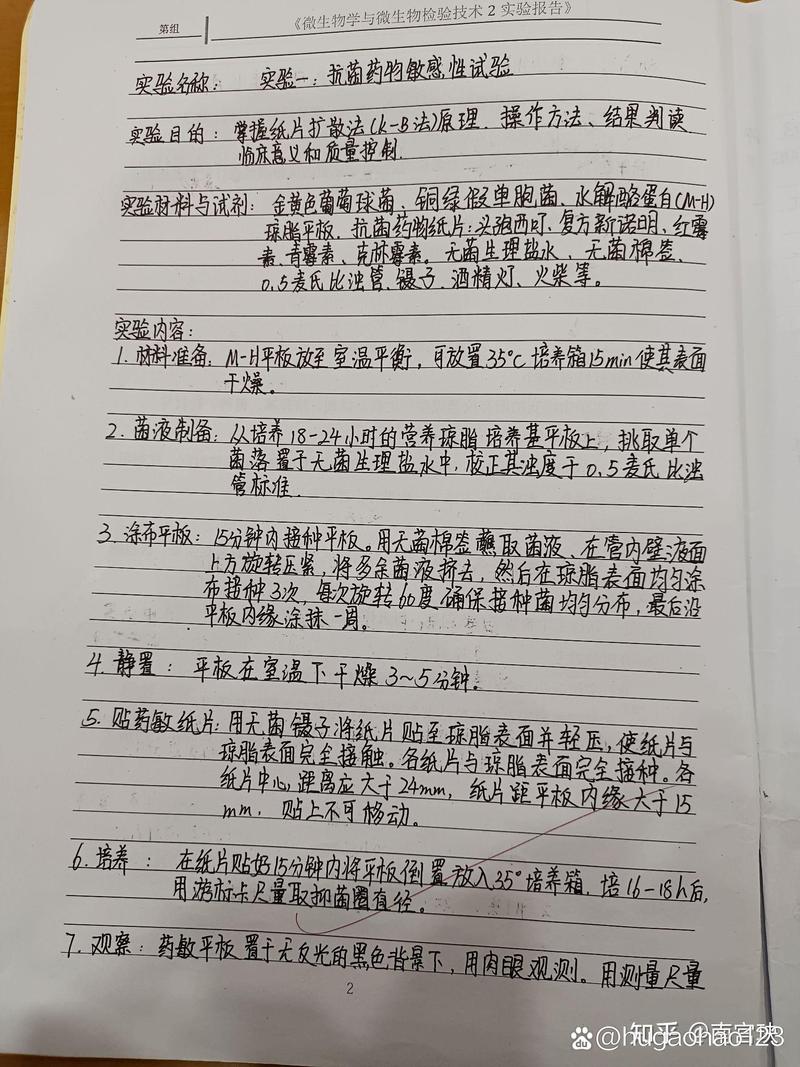 第组
《微生物学与微生物检验技术 2 实验报告》
实验名称: 实验一: 抗菌药物敏感性试验
实验目的: 掌握纸片扩散法(K-B法)原理、操作方法、结果判读
临床意义和质量控制.
实验材料与试剂: 金黄色葡萄球菌、铜绿假单胞菌、水解酪蛋白(M-H)
琼脂平板、抗菌药物纸片:头孢西叮、复方新诺明、红霉
素、青霉素、克林霉素。无菌生理盐水、无菌棉签、
0.5麦氏比浊管、镊子、酒精灯、火柴等。
实验内容:
1. 材料准备: M-H平板放至室温平衡, 可放置35°C培养箱15min使其表面
干燥。
2. 菌液制备: 从培养18-24小时的营养琼脂培养基平板上, 挑取单个
菌落置于无菌生理盐水中, 校正其浊度于0.5麦氏比浊
管标准.
3. 涂布平板: 15分钟内接种平板。用无菌棉签蘸取菌液、在管内壁液面
上方旋转压紧, 将多余菌液挤去, 然后在琼脂表面均匀涂
布接种3次, 每次旋转60度, 确保接种菌均匀分布, 最后沿
平板内缘涂抹一周。
4. 静置: 平板在室温下干燥3~5分钟。
5. 贴药敏纸片: 用无菌镊子将纸片贴至琼脂表面并轻压, 使纸片与
琼脂表面完全接触。各纸片与琼脂表面完全接种。各
纸片中心距离应大于24mm, 纸片距平板内缘大于15
mm, 贴上不可移动。
6. 培养: 在纸片贴好15分钟内将平板倒置放入35°培养箱, 培16-18h后,
用游标卡尺量取抑菌圈直径。
7. 观察: 药敏平板置于无反光的黑色背景下, 用肉眼观测。用测量尺量
2
知乎 @南宫瑛
@hugaohao123